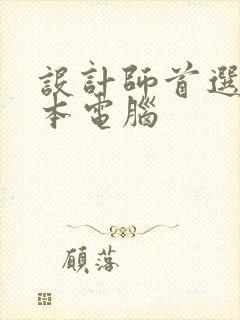 設計師首選
本電腦
顧落